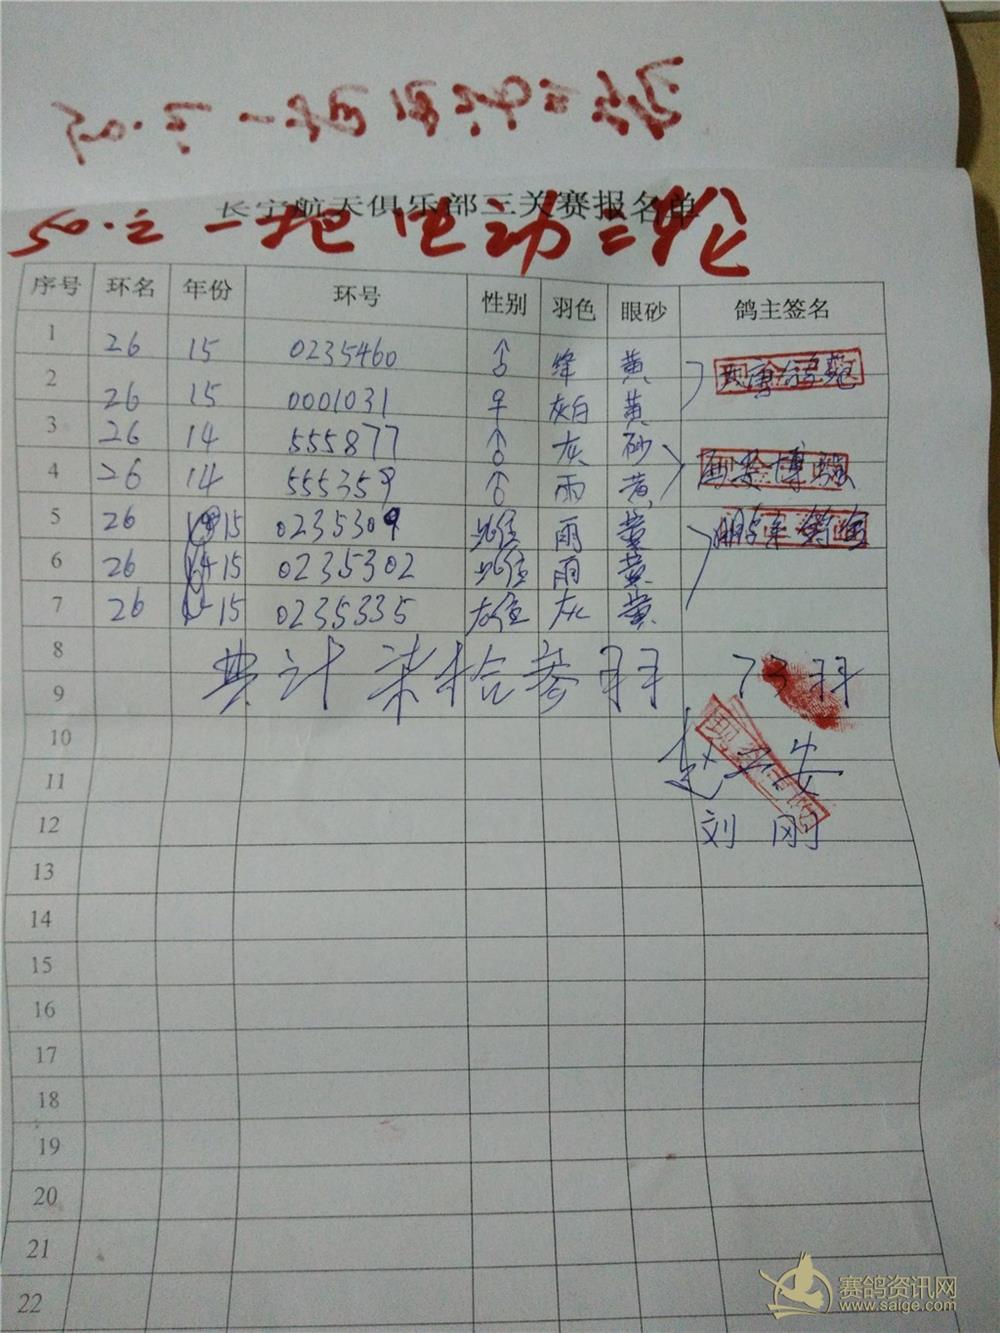 长宁航天俱乐部三关赛报名单
50.之一拖 电动三轮
序号 环名 年份 环号 性别 羽色 眼砂 鸽主签名
1 26 15 0235460 ♂ 绛 黄
2 26 15 0001031 ♀ 灰白 黄
3 26 14 555877 ♂ 灰 砂
4 26 14 555359 ♂ 雨 黄
5 26 15 0235309 雨 黄
6 26 15 0235302 雨 黄
7 26 15 0235335 灰 黄
8
共计柒拾参羽 73羽
9
10
11
12 刘刚
13
14
15
16
17
18
19
20
21
22
赛鸽资讯网
www.saige.com